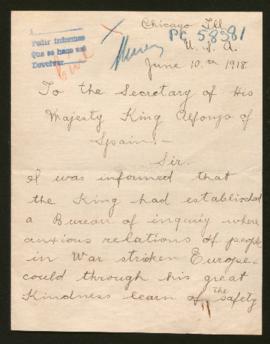 Chicago Ill
PC 58381
U. S. A.
Pedir informes
Que se haga eco
Devolver
June 10. 1918
To the Secretary of His
Majesty King Alfonso of
Spain:-
Sir.
I was informed that
the King had established
a Bureau of inquiry where
anxious relations of people
in War stricken Europe-
could through his great
Kindness learn of the safety